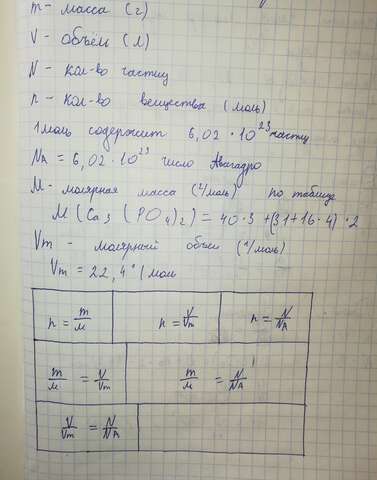 m - масса (г)
V - объём (л)
N - кол-во частиц
n - кол-во вещества (моль)
1 моль содержит 6,02 · 10²³ частиц
NA = 6,02 · 10²³ число Авагадро
M - молярная масса (г/моль) по таблице
M (Ca₃ (PO₄)₂) = 40·3 + (31+16·4)·2
Vm - молярный объем (л/моль)
Vm = 22,4 л/моль
n = m/M n = V/Vm n = N/NA
m/M = V/Vm m/M = N/NA
V/Vm = N/NA